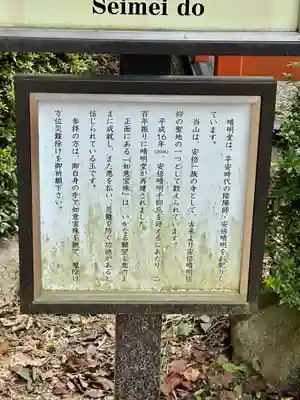 Seimei do
晴明堂は、平安時代の陰陽師・安倍晴明をお祀りし
ています。
当山は、安倍一族の寺として、古来より安倍晴明信
仰の聖地の一つとして数えられています。
平成16年(2004)、安倍晴明千回忌を迎えるにあたり、二
百年振りに晴明堂が再建されました。
正面にある「如意宝珠」は、いかなる願望も意のま
まに成就し、また悪を払い、災難を防ぐ功徳があると
信じられている玉です。
参拝の方は、御自身の手で如意宝珠を撫で、魔除け
方位災難除けを御祈願下さい。